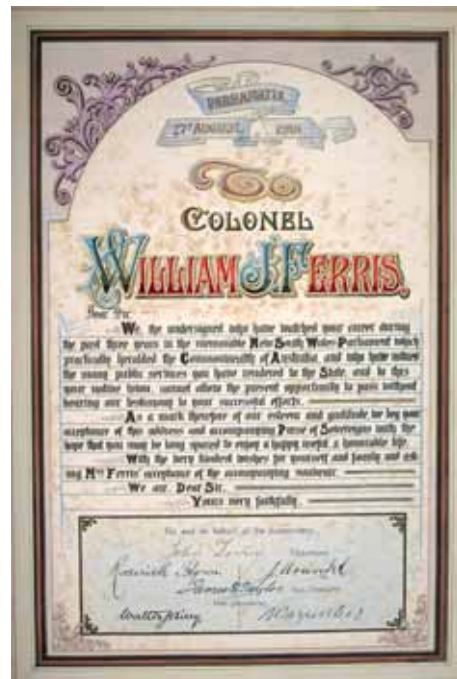 PARRAMATTA
27TH AUGUST, 1901
To
COLONEL
WILLIAM J. FERRIS,
Dear Sir,
We, the undersigned who have watched your career during
the past three years in the memorable New South Wales Parliament which
practically heralded the Commonwealth of Australia, and who have noticed
the many public services you have rendered to the State, and to this
your native town, cannot allow the present opportunity to pass without
bearing our testimony to your successful efforts.
As a mark therefore of our esteem and gratitude, we beg your
acceptance of this address and accompanying Purse of Sovereigns with the
hope that you may be long spared to enjoy a happy, useful, & honorable life.
With the very kindest wishes for yourself and family and ask-
ing Mrs Ferris' acceptance of the accompanying souvenir.
We are, Dear Sir,
Yours very faithfully,
For and on behalf of the
John
Roderick
James Taylor
Walter